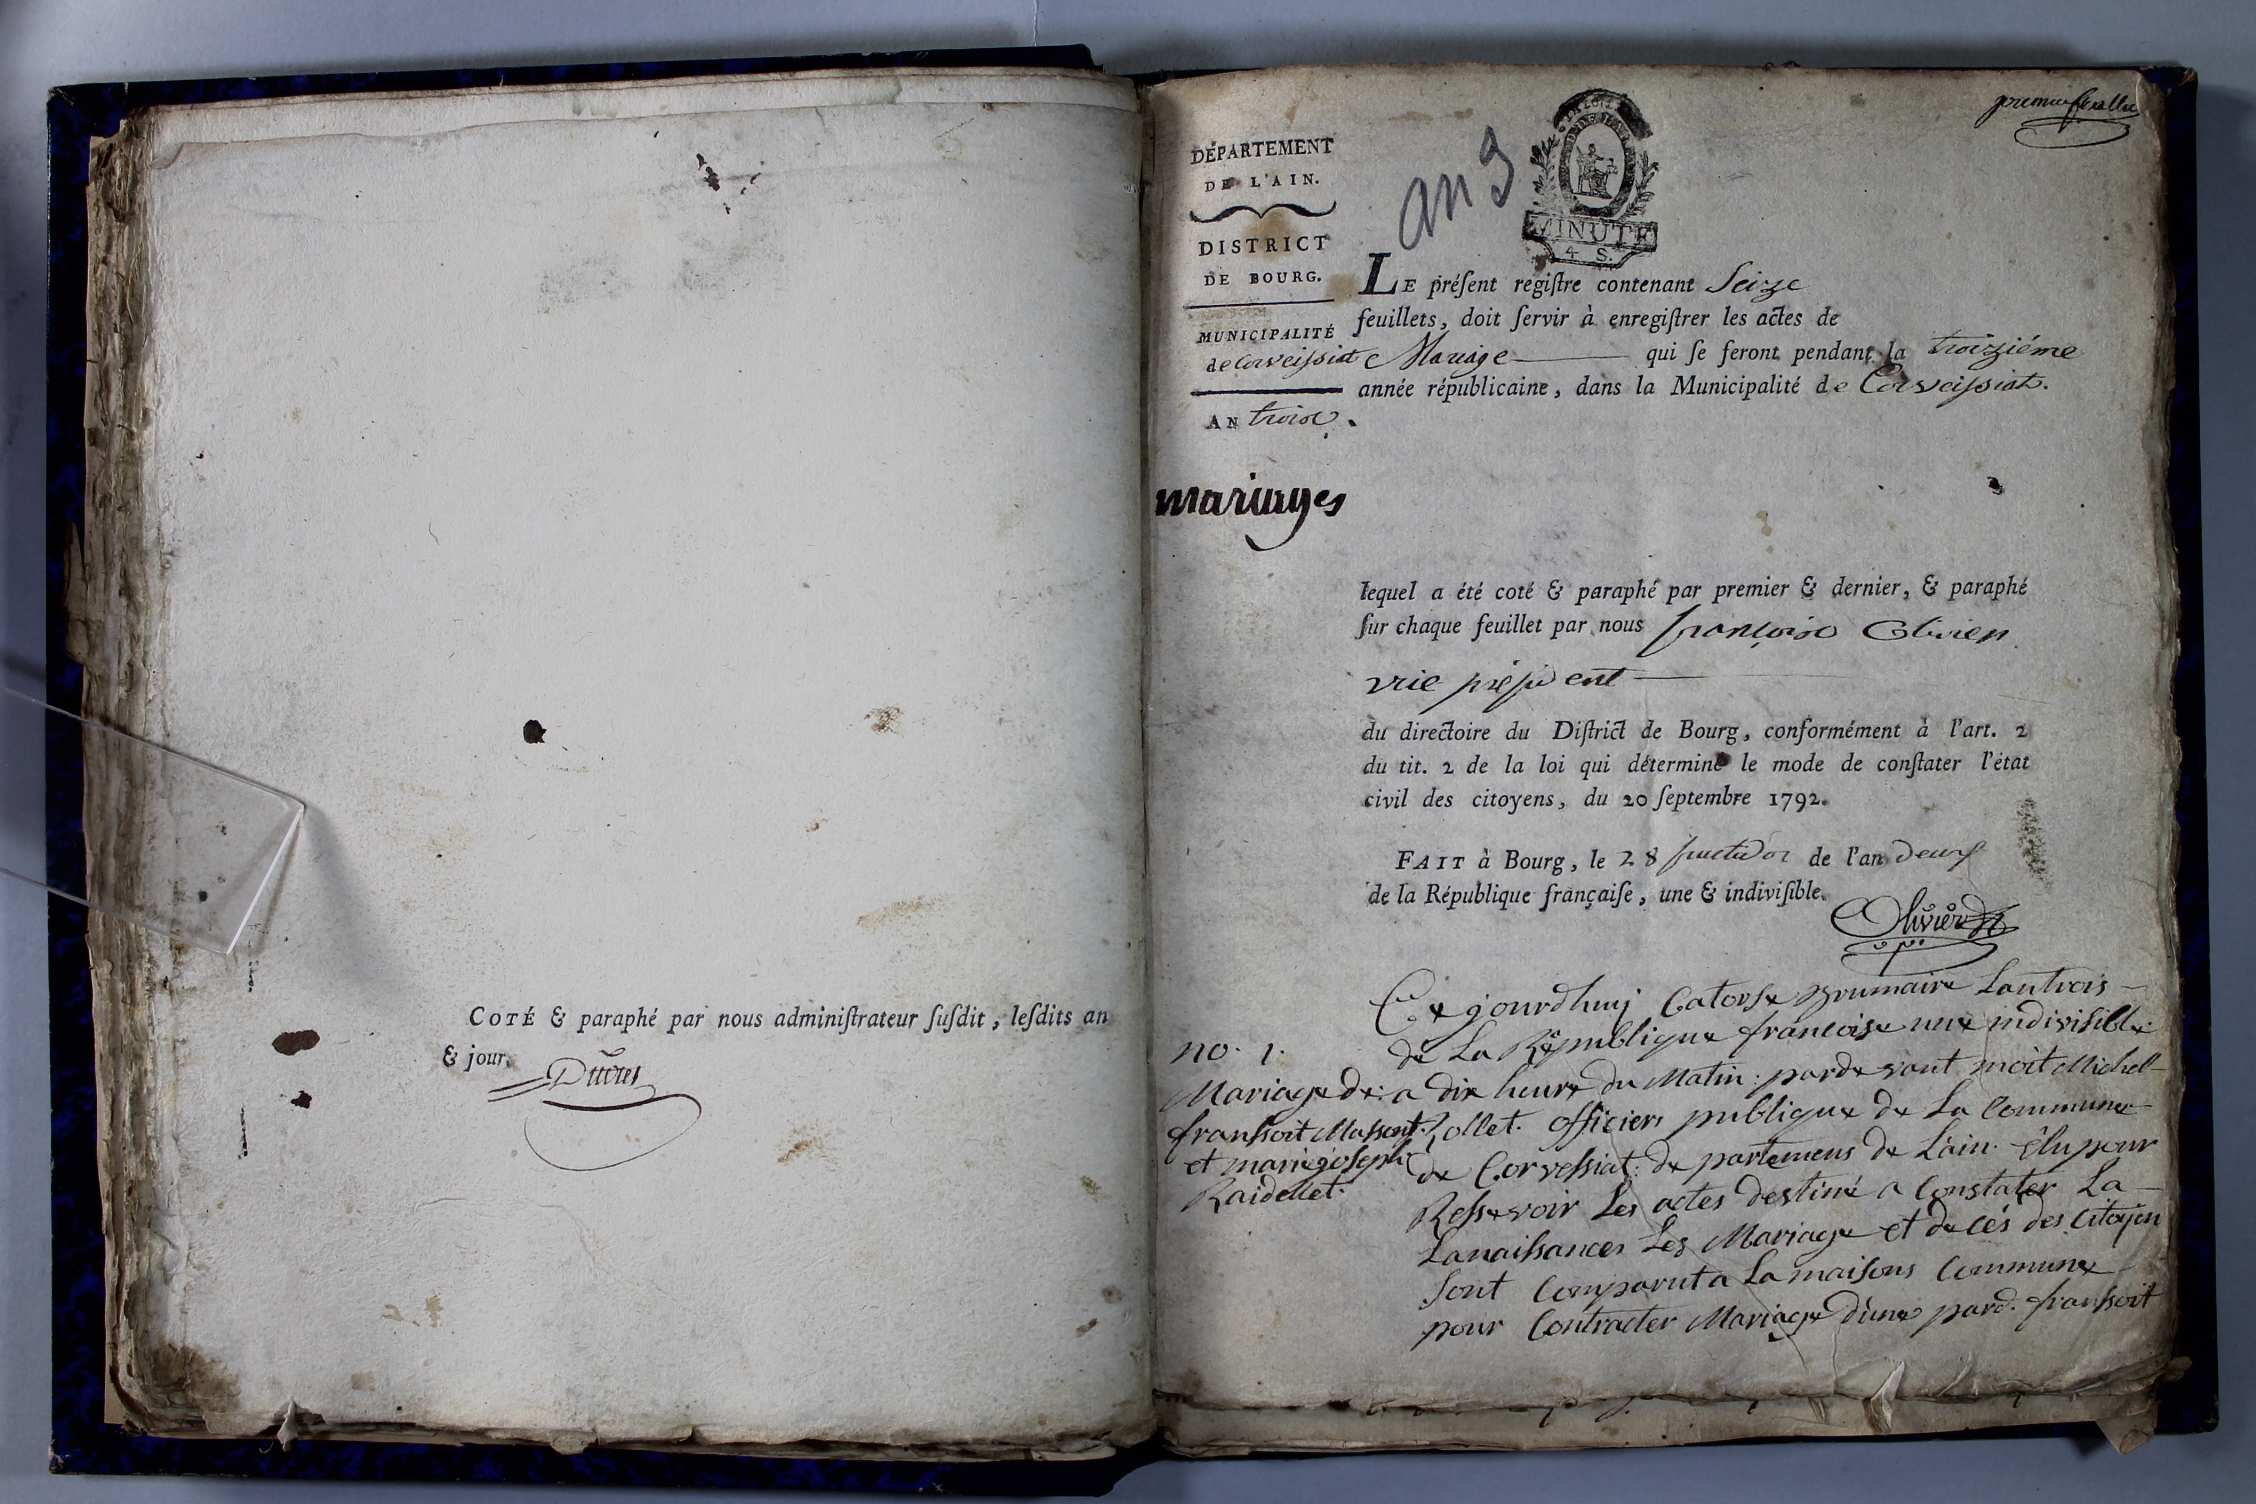 COTÉ & paraphé par nous administrateur ſuſdit, leſdits an
& jour.
premier feuillet
DÉPARTEMENT
DE L'AIN.
DISTRICT
DE BOURG.
MUNICIPALITÉ
de Corveissiat
AN trois.
an 3
MINUTE
4 S.
LE préſent regiſtre contenant Seize
feuillets, doit ſervir à enregiſtrer les actes de
Mariage qui ſe feront pendant la troiziéme
année républicaine, dans la Municipalité de Corveissiat.
mariages
lequel a été coté & paraphé par premier & dernier, & paraphé
ſur chaque feuillet par nous françois Olivier
vice président
du directoire du Diſtrict de Bourg, conformément à l'art. 2
du tit. 2 de la loi qui détermine le mode de conſtater l'état
civil des citoyens, du 20 ſeptembre 1792.
FAIT à Bourg, le 28 fructidor de l'an deux
de la République françaiſe, une & indiviſible.
Olivier
no. 1.
Mariage de
franssoit Massont
et marie joseph
Raidellet.
Ce jourdhuij Catorse Brumaire Lantrois
de La République francoise une indivisible
a dix heure du Matin: pardevant moit Michel
Rollet. officiers publique de La Commune
de Corvessiat: departemens de L'ain. élu pour
Ressevoir Les actes destiné a Constater La
Lanaissances Les Mariage et decés des Citoyen
Sont Comparut a La maisons Commune
pour Contracter Mariage d'une pard. franssoit